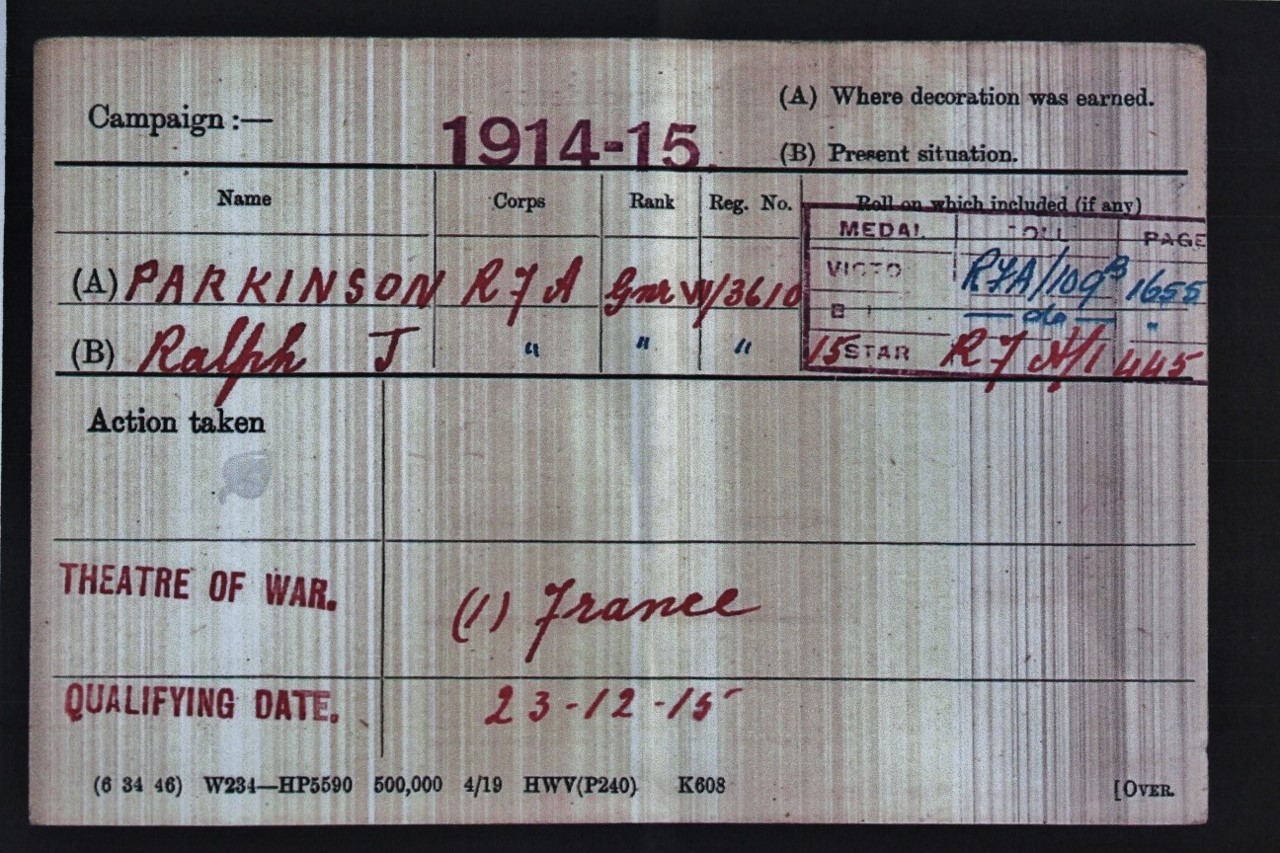 (A) Where decoration was earned.
Campaign :— 1914-15.
(B) Present situation.
Name Corps Rank Reg. No. Roll on which included (if any)
MEDAL PAGE
(A) PARKINSON R F A Gnr W/3610 VICTO RFA/109B 1655
— do — "
(B) Ralph J " " " 15 STAR R F A/1 445
Action taken
THEATRE OF WAR. (1) France
QUALIFYING DATE. 23-12-15
(6 34 46) W234—HP5590 500,000 4/19 HWV(P240) K608 [OVER.